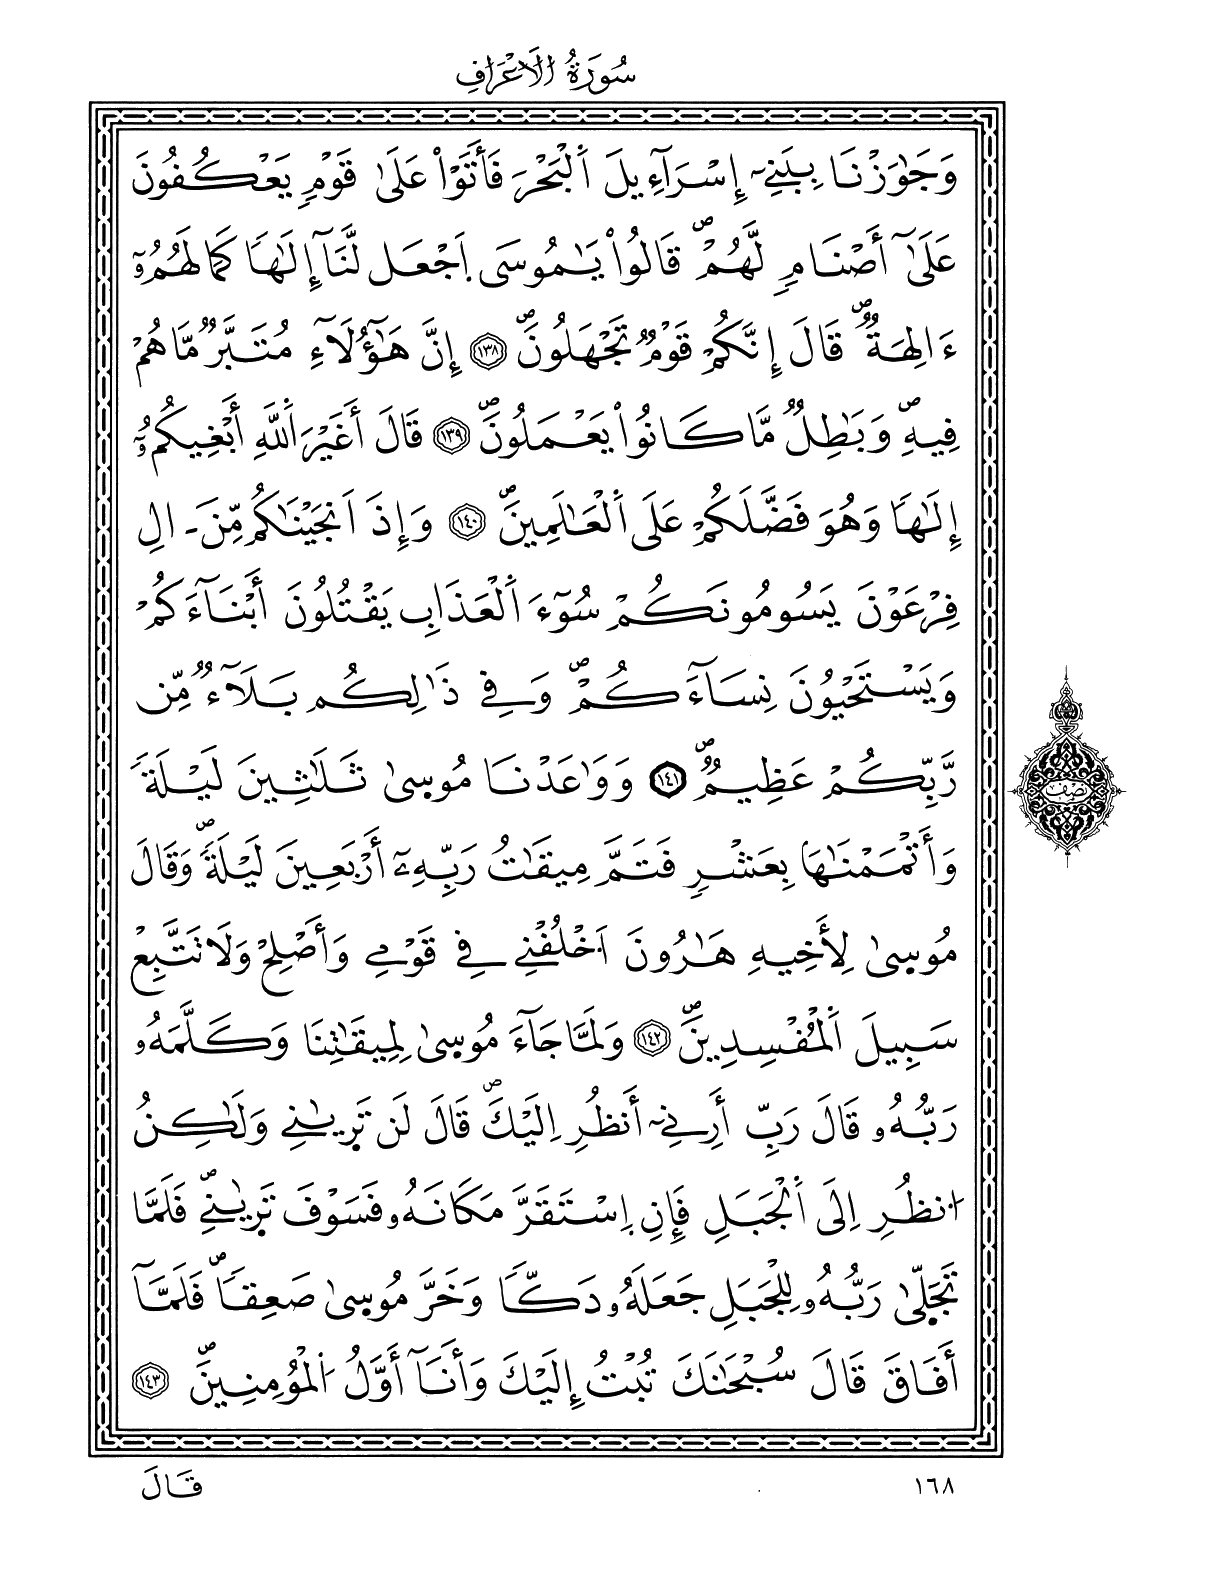 سُورَةُ الَاعْرَافِ
وَجَٰوَزْنَا بِبَنِےٓ إِسْرَآءِيلَ اَ۬لْبَحْرَ فَأَتَوْاْ عَلَىٰ قَوْمٖ يَعْكُفُونَ
عَلَىٰٓ أَصْنَامٖ لَّهُمْۖ قَالُواْ يَٰمُوسَى اَ۪جْعَل لَّنَآ إِلَٰهاٗ كَمَا لَهُمُۥٓ
ءَالِهَةٞۖ قَالَ إِنَّكُمْ قَوْمٞ تَجْهَلُونَۖ ١٣٨ إِنَّ هَٰٓؤُلَآءِ مُتَبَّرٞ مَّا هُمْ
فِيهِۖ وَبَٰطِلٞ مَّا كَانُواْ يَعْمَلُونَۖ ١٣٩ قَالَ أَغَيْرَ اَ۬للَّهِ أَبْغِيكُمُۥٓ
إِلَٰهاٗ وَهُوَ فَضَّلَكُمْ عَلَى اَ۬لْعَٰلَمِينَۖ ١٤٠ وَإِذَ اَنجَيْنَٰكُم مِّنَ اٰلِ
فِرْعَوْنَ يَسُومُونَكُمْ سُوٓءَ اَ۬لْعَذَابِ يَقْتُلُونَ أَبْنَآءَكُمْ
وَيَسْتَحْيُونَ نِسَآءَكُمْۖ وَفِے ذَٰلِكُم بَلَآءٞ مِّن
رَّبِّكُمْ عَظِيمٞۖ ١٤١ وَوَٰعَدْنَا مُوسىٰ ثَلَٰثِينَ لَيْلَةٗ
وَأَتْمَمْنَٰهَا بِعَشْرٖ فَتَمَّ مِيقَٰتُ رَبِّهِۦٓ أَرْبَعِينَ لَيْلَةٗۖ وَقَالَ
مُوسىٰ لِأَخِيهِ هَٰرُونَ اَ۟خْلُفْنِے فِے قَوْمِے وَأَصْلِحْ وَلَا تَتَّبِعْ
سَبِيلَ اَ۬لْمُفْسِدِينَۖ ١٤٢ وَلَمَّا جَآءَ مُوسىٰ لِمِيقَٰتِنَا وَكَلَّمَهُۥ
رَبُّهُۥ قَالَ رَبِّ أَرِنِےٓ أَنظُرِ اِلَيْكَۖ قَالَ لَن تَرٜىٰنِے وَلَٰكِنُ
اُ۟نظُرِ اِلَى اَ۬لْجَبَلِ فَإِنِ اِ۪سْتَقَرَّ مَكَانَهُۥ فَسَوْفَ تَرٜىٰنِےۖ فَلَمَّا
تَجَلّىٰ رَبُّهُۥ لِلْجَبَلِ جَعَلَهُۥ دَكّاٗ وَخَرَّ مُوسىٰ صَعِقاٗۖ فَلَمَّآ
أَفَاقَ قَالَ سُبْحَٰنَكَ تُبْتُ إِلَيْكَ وَأَنَآ أَوَّلُ اُ۬لْمُؤْمِنِينَۖ ١٤٣
نصف
١٦٨
قَالَ